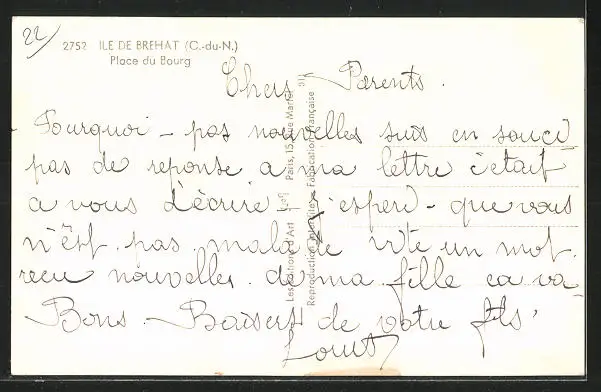 22
2752 ILE DE BREHAT (C.-du-N.)
Place du Bourg
Chers Parents.
Pourquoi - pas nouvelles suis en souci
pas de reponse a ma lettre c'etait
a vous d'ecrire - j'esperd - que vous
n'êst pas malade vite un mot.
recu nouvelles de ma fille ca va
Bons Baisers de votre fils
Louis
Les Editions d'Art Paris, 15, Rue Martel
Reproduction Fabrication Française